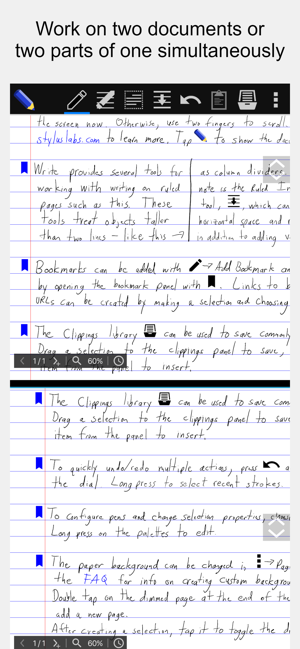 Work on two documents or
two parts of one simultaneously
the screen now. Otherwise, use two fingers to scroll.
styluslabs.com to learn more. Tap to show the doc
Write provides several tools for
working with writing on ruled
pages such as this. These
tools treat objects taller
than two lines - like this →
as column divider
note is the Ruled In
tool, , which can
horizontal space and
in addition to adding v
Bookmarks can be added with → Add Bookmark
by opening the bookmark panel with . Links to b
URLs can be created by making a selection and choosing
The Clippings library can be used to save commonly
Drag a selection to the clippings panel to save,
item from the panel to insert.
1/1 60%
The Clippings library can be used to save com
Drag a selection to the clippings panel to save
item from the panel to insert.
To quickly undo/redo multiple actions, press a
the dial. Long press to select recent strokes.
To configure pens and change selection properties,
Long press on the palettes to edit.
The paper background can be changed in → Pag
the FAQ for info on creating custom backgrou
Double tap on the dimmed page at the end of the
add a new page.
After creating a selection, tap it to toggle the d
1/1 60%